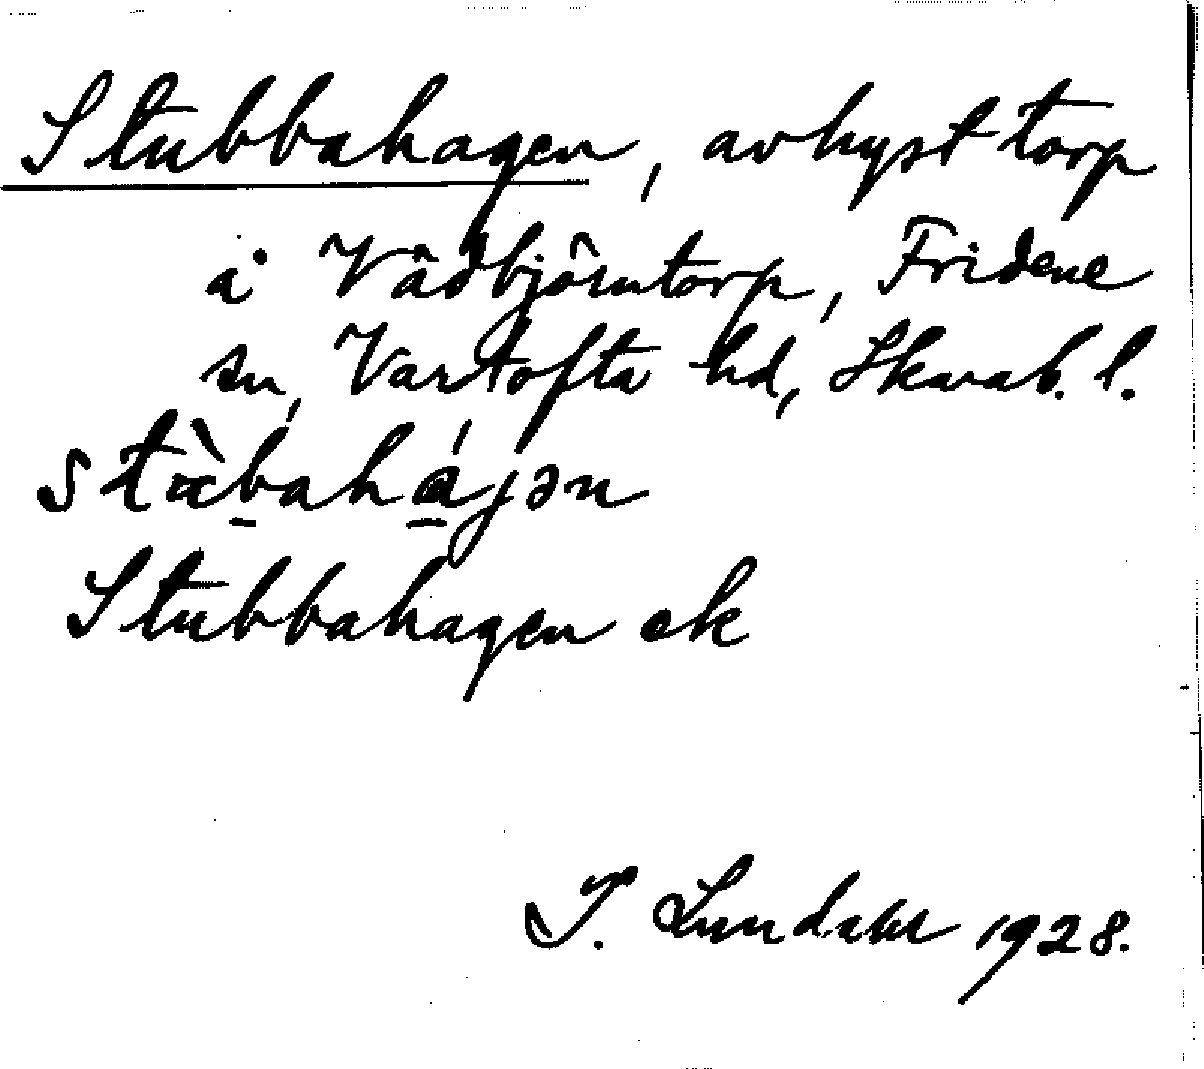 Stubbahagen, avhyst torp
å Vådbjörntorp, Fridene
sn, Vartofta hd, Skarab. l.
stàbahájən
Stubbahagen ek
I. Lundahl 1928.